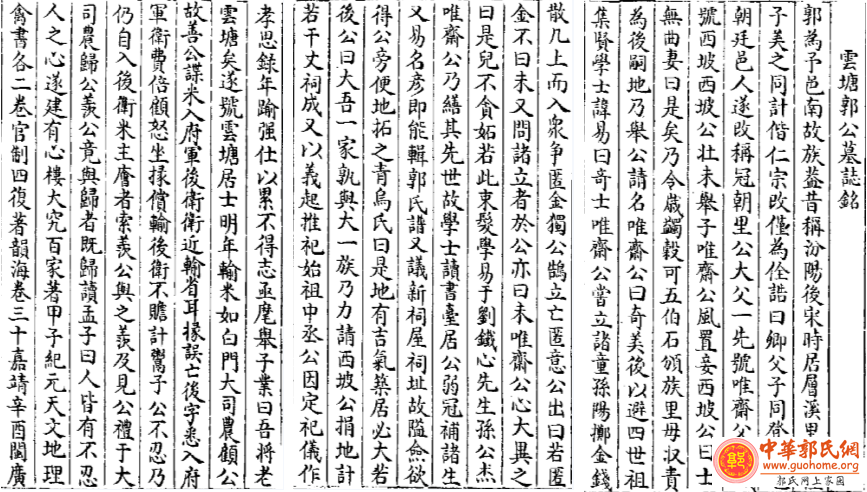 雲塘郭公墓誌銘
郭為予邑南故族蓋昔稱汾陽後宋時居層溪里
子美之同計偕仁宗改僅為佺誥曰卿父子同登
朝廷邑人遂改稱冠朝里公大父一先號唯齋父
號西坡西坡公壯未舉子唯齋公風置妾西坡公曰士
無曲妻曰是矣乃令歲蠲穀可五伯石頒族里毋収責
為後嗣地乃舉公請名唯齋公曰奇美後以避四世祖
集賢學士諱易曰奇士唯齋公嘗立諸童孫陽擲金錢
散几上而入衆争匿金獨公鵠立亡匿意公出曰若匿
金不曰未又問諸立者於公亦曰未唯齋公心大異之
曰是兒不貪妬若此束髮學易于劉鐵心先生孫公杰
唯齋公乃繕其先世故學士讀書臺居公弱冠補諸生
又易名彦即能輯郭氏譜又議新祠屋祠址故隘僉欲
得公旁便地拓之青烏氏曰是地有吉氣築居必大若
後公曰大吾一家孰與大一族乃力請西坡公捐地計
若干丈祠成又以義起推祀始祖中丞公因定祀儀作
孝思錄年踰强仕以累不得志亟麾舉子業曰吾將老
雲塘矣遂號雲塘居士明年輸米如白門大司農顧公
故善公諜米入府軍後衛衛近輸省耳掾誤亡後字悉入府
軍衛費倍顧怒坐掾償輸後衛不贍計鬻子公不忍乃
仍自入後衛米主廥者索羨公與之羨及見公禮于大
司農歸公羨公竟與歸者既歸讀孟子曰人皆有不忍
人之心遂建有心樓大究百家著甲子紀元天文地理
禽書各二卷官制四復著韻海卷三十嘉靖辛酉閩廣
中華郭氏網
www.guohome.org
郭氏网上家園